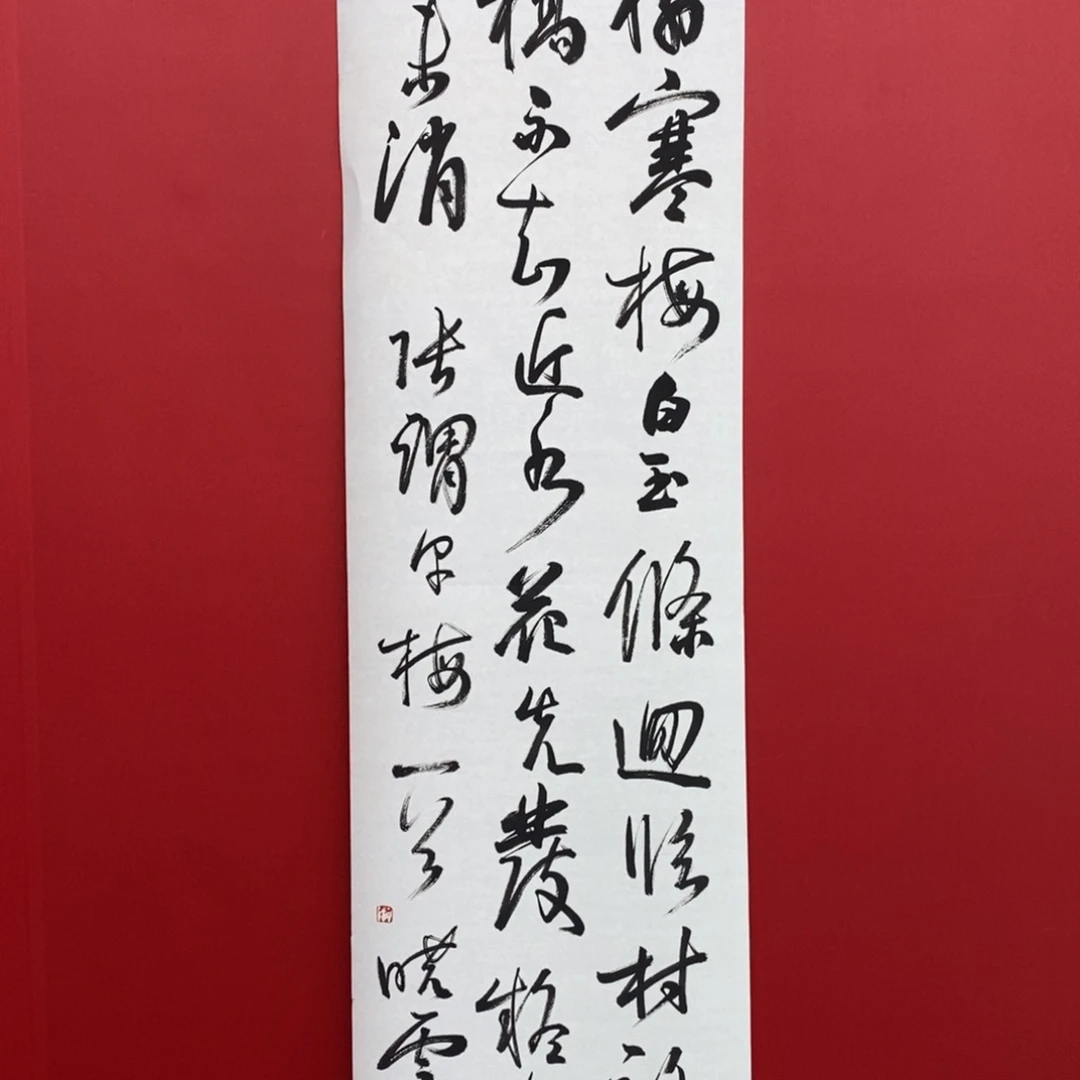 樹寒梅白玉條迴臨村
橋不知近水花先發疑
未消 張謂早梅一首 曉雲